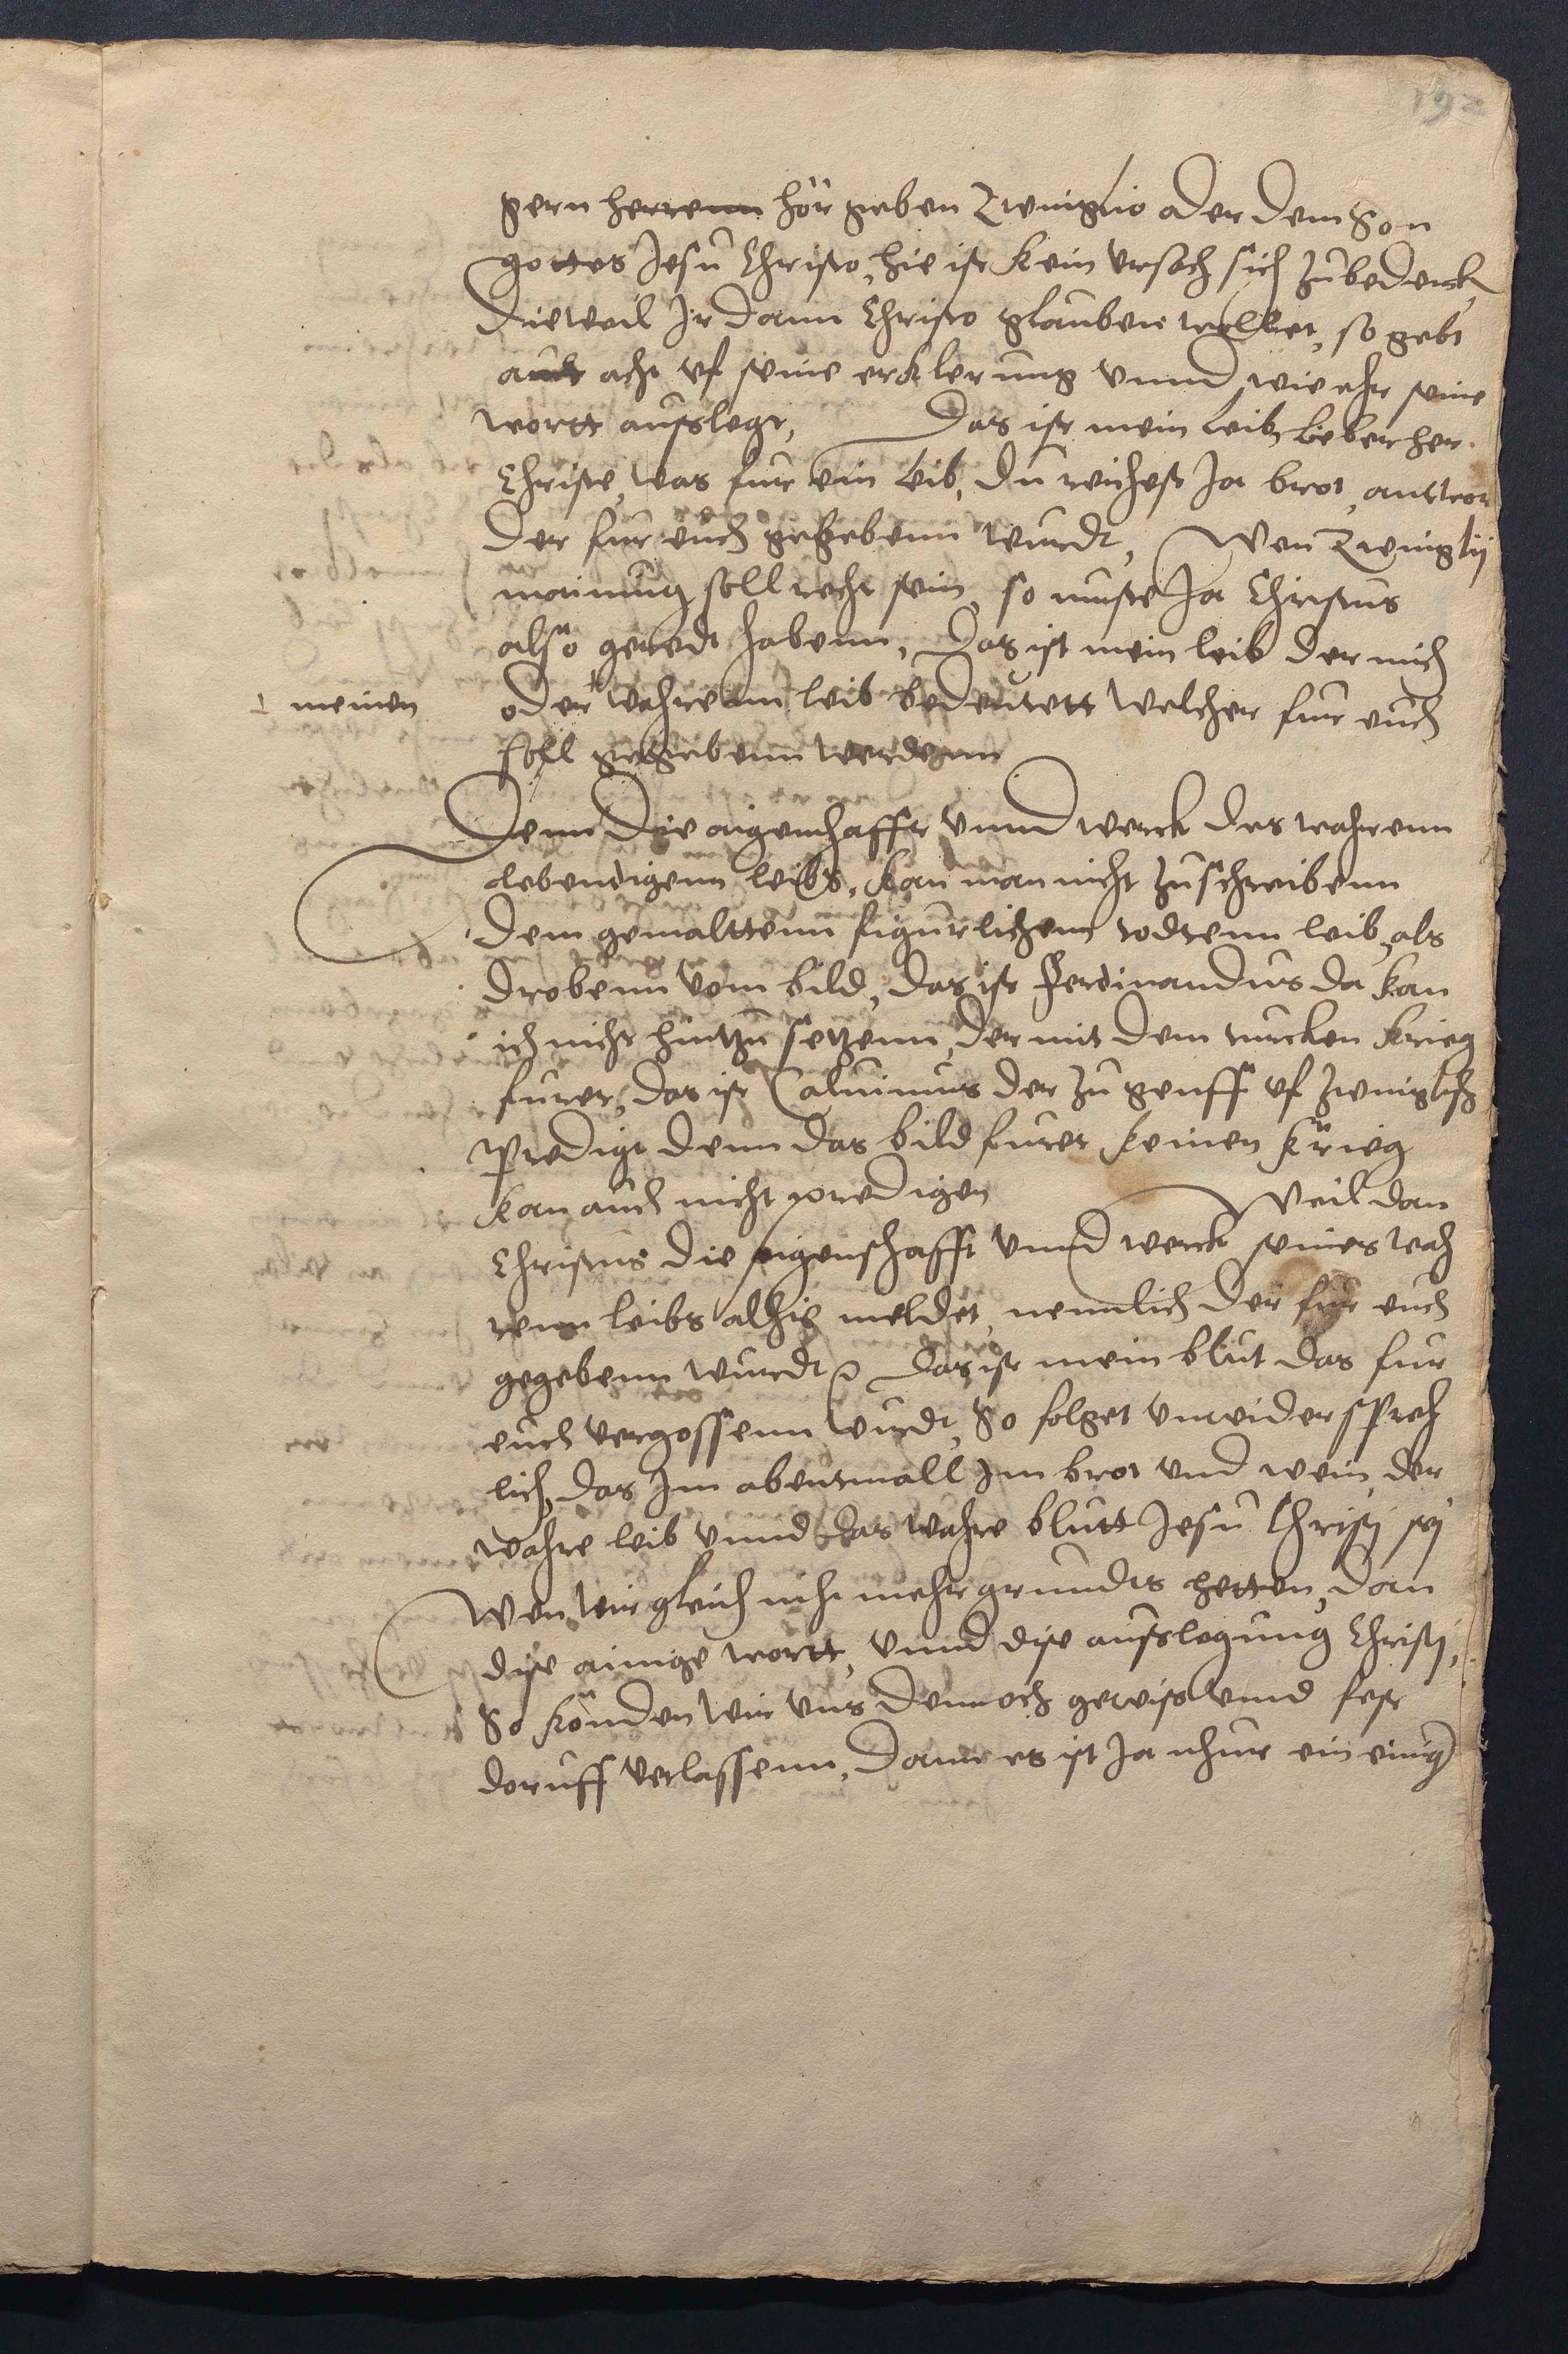 192
gern herrenn hör geben Zwinglio oder dem Son
gottes Jesu Christo, hie ist kein ursach sich zubedenck
Dieweil Ir dann Christo glauben wollet, so gebt
auch acht uf seine erklerung vnnd wie ehr seine
wortt ausslegt, Das ist mein leib, Lieber her
Christe, was fur ein leib, du reichest Ja brot, anttwor
Der fur euch gegebenn wurdt, Wen Zwinglij
mainung soll recht sein, so muste Ja Christus
also geredt habenn, Das ist mein leib der mich
meinen
oder wahrenn leib bedeutett welcher fur euch
soll gegebenn werdenn
Denn die aigenschafft vnnd werck des wahrenn
lebendigenn leibs, kan man nicht zuschreibenn
Dem gemalttenn figurlichenn todtenn leib, als
Drobenn vom bild, das ist Ferdinandus da kan
ich nicht hintzu setzenn, der mit dem turcken krieg
furet, das ist Caluinus der zu genff uf zwinglisch
predigt denn das bild furet keinen krieg
kan auch nicht predigen Weil dan
Christus die eigenschafft vnnd werck seines wah
renn leibs alhie meldet, nemlich der fur euch
gegebenn wurdt Das ist mein blut das fur
euch vergossenn wurdt, So folget vnwidersprech
lich, das Im abentmall Im brot vnd wein, der
wahre leib vnnd das wahre blutt Jesu Christj sej
Wen wir gleich nicht mehr grundts hetten, dan
dise ainige wortt, vnnd dise ausslegung Christj,
So könden wir vns dennoch gewiss vnnd fest
doruff verlassenn, Dann es ist Ja nhur ein einig